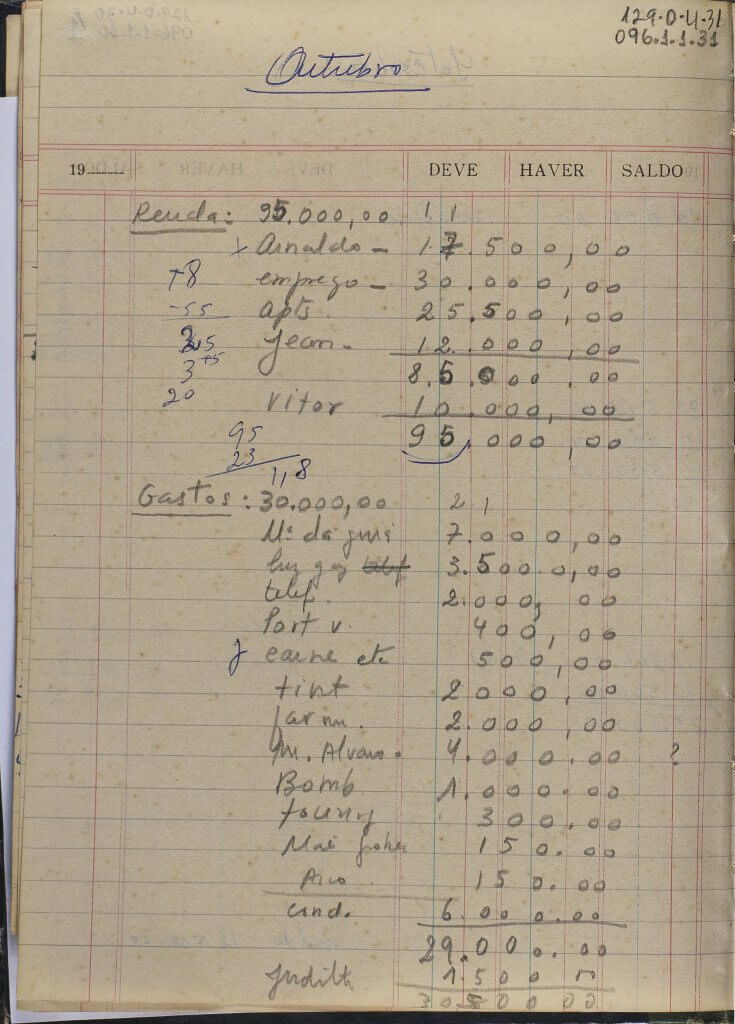 129.0.4.31
096.1.1.31
Outubro
19 DEVE HAVER SALDO
Renda: 95.000,00 11
x Arnaldo - 17.500,00
+8 emprego - 30.000,00
-55 apts. 25.500,00
Jean - 12.000,00
3 +5 85.000.00
20 Vitor 10.000,00
95 95.000,00
23
11,8
Gastos: 30.000,00 21
Mª da 7.000,00
luz gaz telef 3.500 0,00
telef. 2.000, 00
Port v. 400,00
carne etc 500,00
tint 2000,00
farm. 2.000,00
M. Alvaro. 4.000.00 ?
Bomb 1.000.00
300.00
150.00
150.00
cond. 6.000.00
29.000.00
Judith 1.500
30.500 00